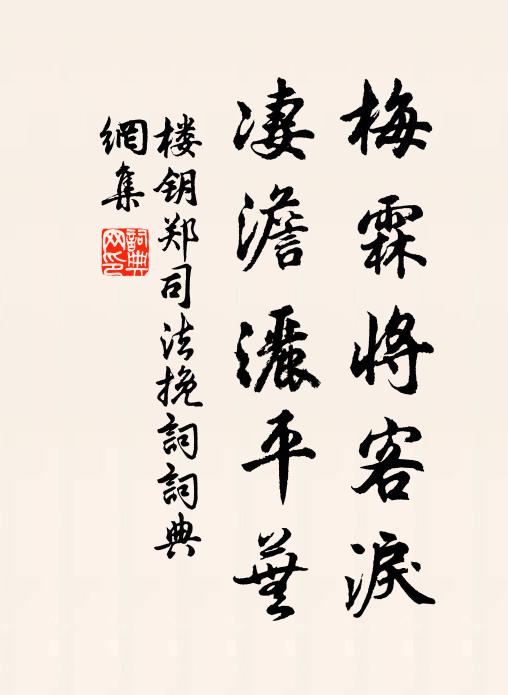 梅霖將客淚
凄澹灑平蕪
楼钥郑司法挽詞詞典
網集
詞典網印